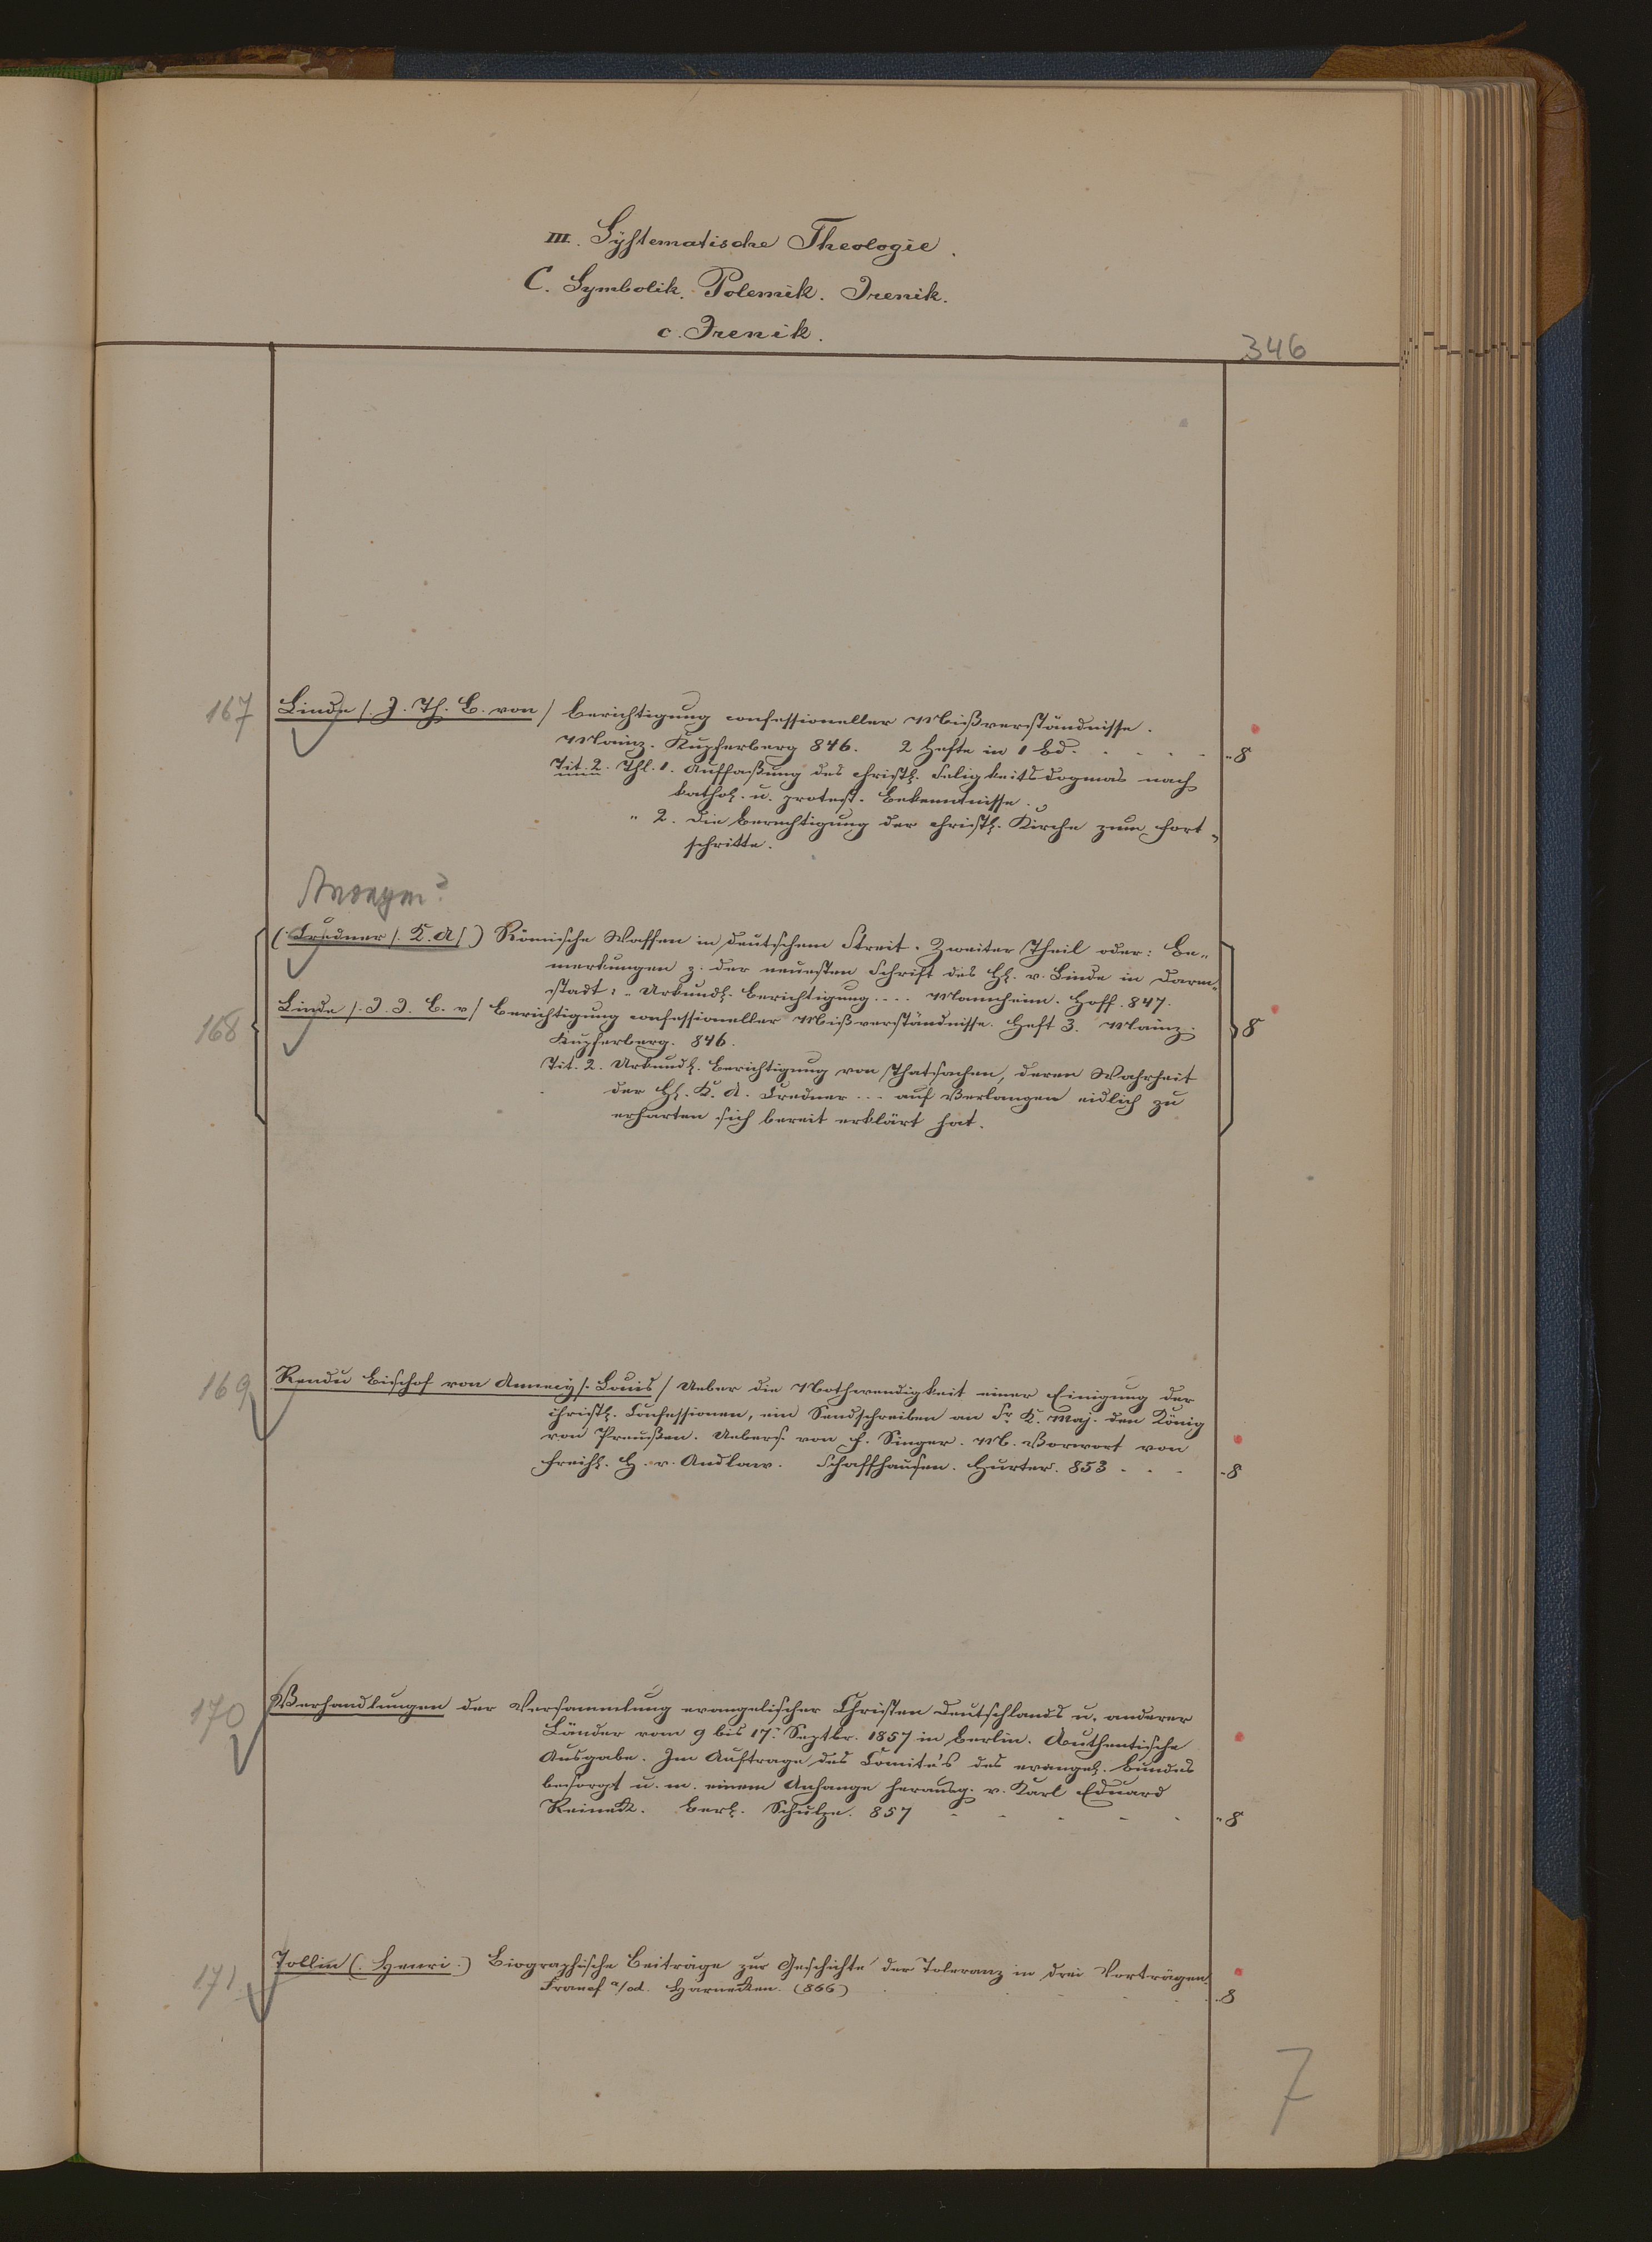 III. Systematische Theologie.
C. Symbolik. Polemik. Irenik.
c. Irenik.
346
167 Linde /. J. Th. B. von / Berichtigung confessioneller Mißverständnisse.
Mainz. Kupferberg 846. 2 Hefte in 1 Bd. . . . . „8
Tit. 2. Thl. 1. Auffaßung des christl. Seligkeitsdogmas nach
kathol. u. protest. Bekenntnisse.
„ 2. Die Berechtigung der christl. Kirche zum Fort-
schritte.
Anonym?
(Credner /. K. A /) Römische Waffen in deutschem Streit. Zweiter Theil oder: Be-
merkungen z. der neuesten Schrift des H. v. Linde in Darm-
stadt: „Urkundl. Berichtigung .... Mannheim. Hoff. 847.
168 Linde /. J. T. B. v / Berichtigung confessioneller Mißverständnisse. Heft 3. Mainz. 8
Kupferberg. 846.
Tit. 2. Urkundl. Berichtigung von Thatsachen, deren Wahrheit
der H. K. A. Credner ... auf Verlangen eidlich zu
erharten sich bereit erklärt hat.
169 Rendu Bischof von Annecy /. Louis / Ueber die Nothwendigkeit einer Einigung der
christl. Confessionen, ein Sendschreiben an Sr. K. Maj. den König
von Preußen. Uebers. von F. Singer. M. Vorwort von
Freih. H. v. Andlaw. Schaffhausen. Hurter. 853 . . . „8
170 Verhandlungen der Versammlung evangelischer Christen Deutschlands u. anderer
Länder vom 9 bis 17. Septbr. 1857 in Berlin. Authentische
Ausgabe. Im Auftrage des Comité's des evangel. Bundes
besorgt u. m. einem Anhange herausg. v. Karl Eduard
Reineck. Berl. Schulze. 857 - - - - - „8
171 Tollin (. Henri .) Biographische Beiträge zur Geschichte der Toleranz in drei Vorträgen.
Francf a/od. Harnecken. (866) . . . . „8
7